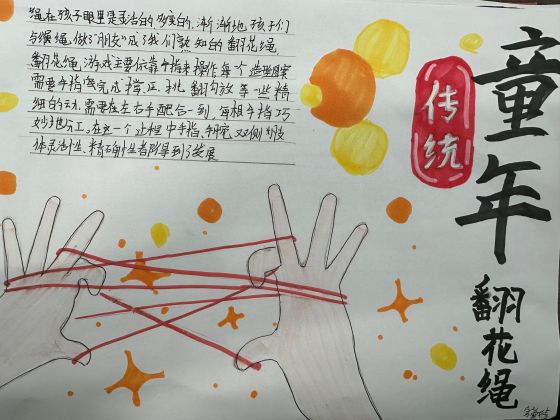 绳在孩子眼里是灵活的多变的,渐渐地,孩子们
与绳绳,做了"朋友"成了我们熟知的翻花绳,
翻花绳,游戏主要依靠手指来操作每个造型
需要手指完成撑、压、挑、翻、勾、放等一些精
细的动,需要在左右手配合一到,每根手指巧
妙地分工,在这一个过程中手指、手腕、双侧肢
体灵活性、精确性者的得到了发展
传统
童年
翻花绳